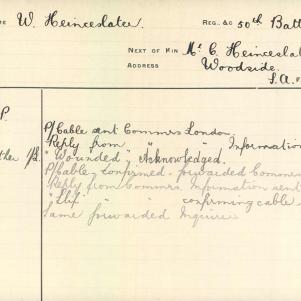 W. Heinceslater Reg. &c 50th Batt
Next of Kin Mr C. Heinceslat
Address Woodside.
S.A.
P. P/Cable sent Commrs London.
Reply from " " Informatio
ther "Wounded" Acknowledged.
P/Cable Confirmed. forwarded Commrs
Reply from Commrs. Information sent
" " confirming cable
Same forwarded Inquirer